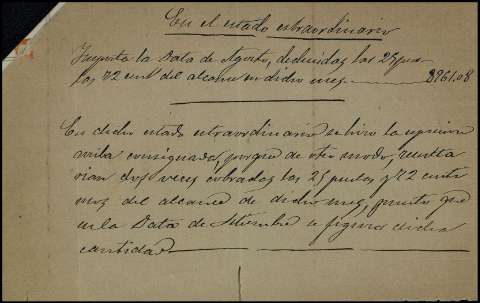 En el estado extraordinario
Importa la Data de Agosto, deducidas las 25 pese
tas 72 cents del alcance en dicho mes 8961.08
En dicho estado extraordinario se hizo la operacion
arriba consignada, porque de otro modo, resulta
rian dos veces cobradas las 25 pesetas y 72 centi
mos del alcance de dicho mes, puesto que
en la Data de Setiembre se figura dicha
cantidad